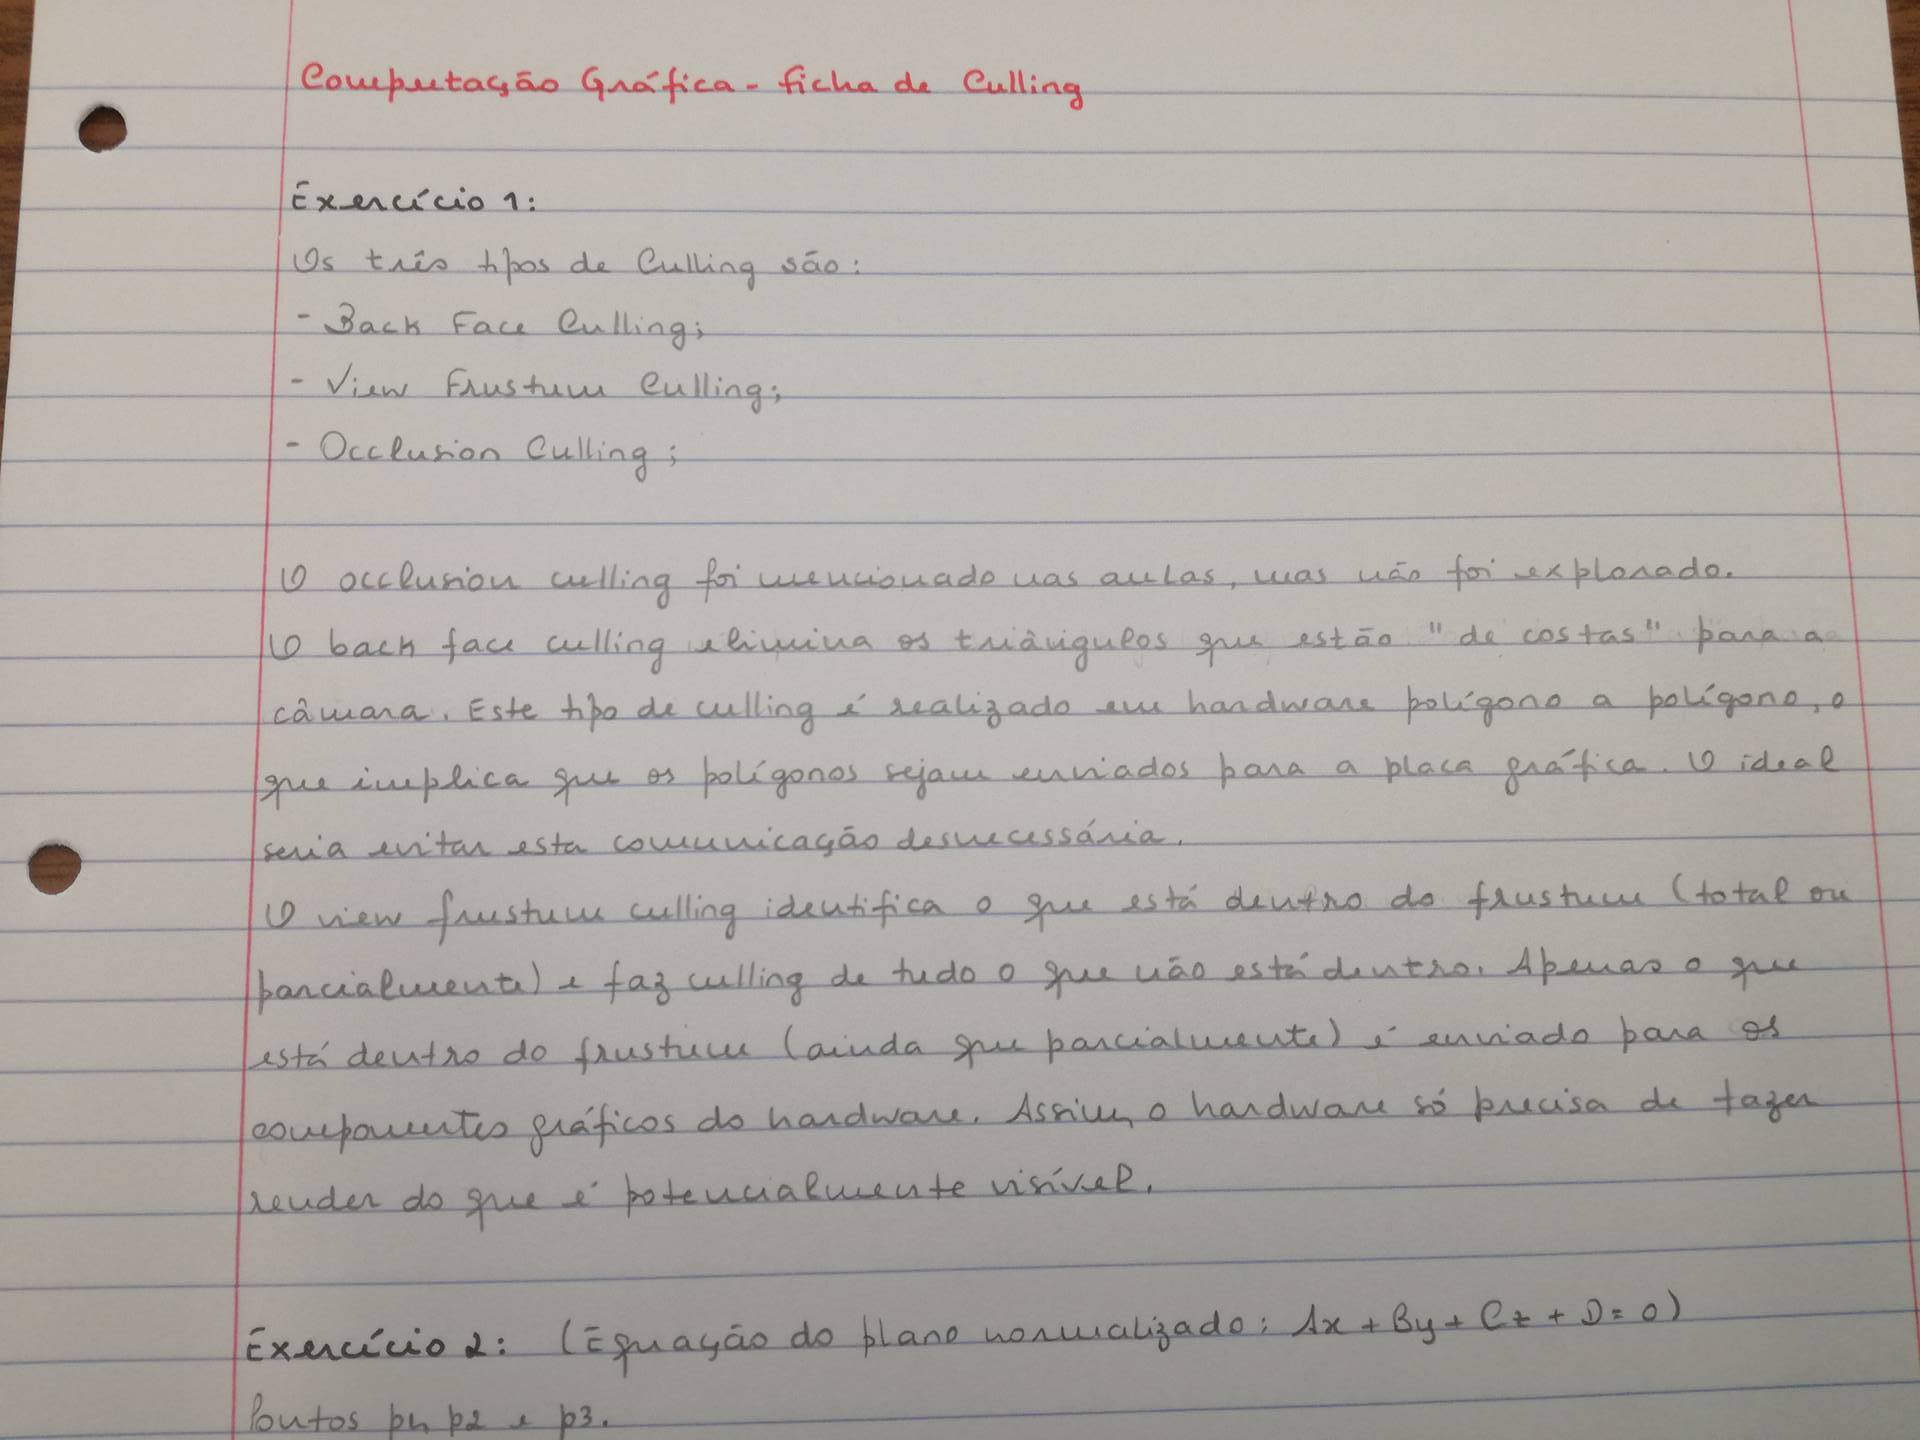 Computação Gráfica - ficha de Culling
Exercício 1:
Os três tipos de Culling são:
- Back Face Culling;
- View Frustum Culling;
- Occlusion Culling;
O occlusion culling foi mencionado nas aulas, mas não foi explorado.
O back face culling elimina os triângulos que estão "de costas" para a
câmara. Este tipo de culling é realizado em hardware polígono a polígono, o
que implica que os polígonos sejam enviados para a placa gráfica. O ideal
seria evitar esta comunicação desnecessária.
O view frustum culling identifica o que está dentro do frustum (total ou
parcialmente) e faz culling de tudo o que não está dentro. Apenas o que
está dentro do frustum (ainda que parcialmente) é enviado para os
componentes gráficos do hardware. Assim, o hardware só precisa de fazer
render do que é potencialmente visível.
Exercício 2: (Equação do plano normalizado: Ax + By + Cz + D = 0)
Pontos p1, p2 e p3.